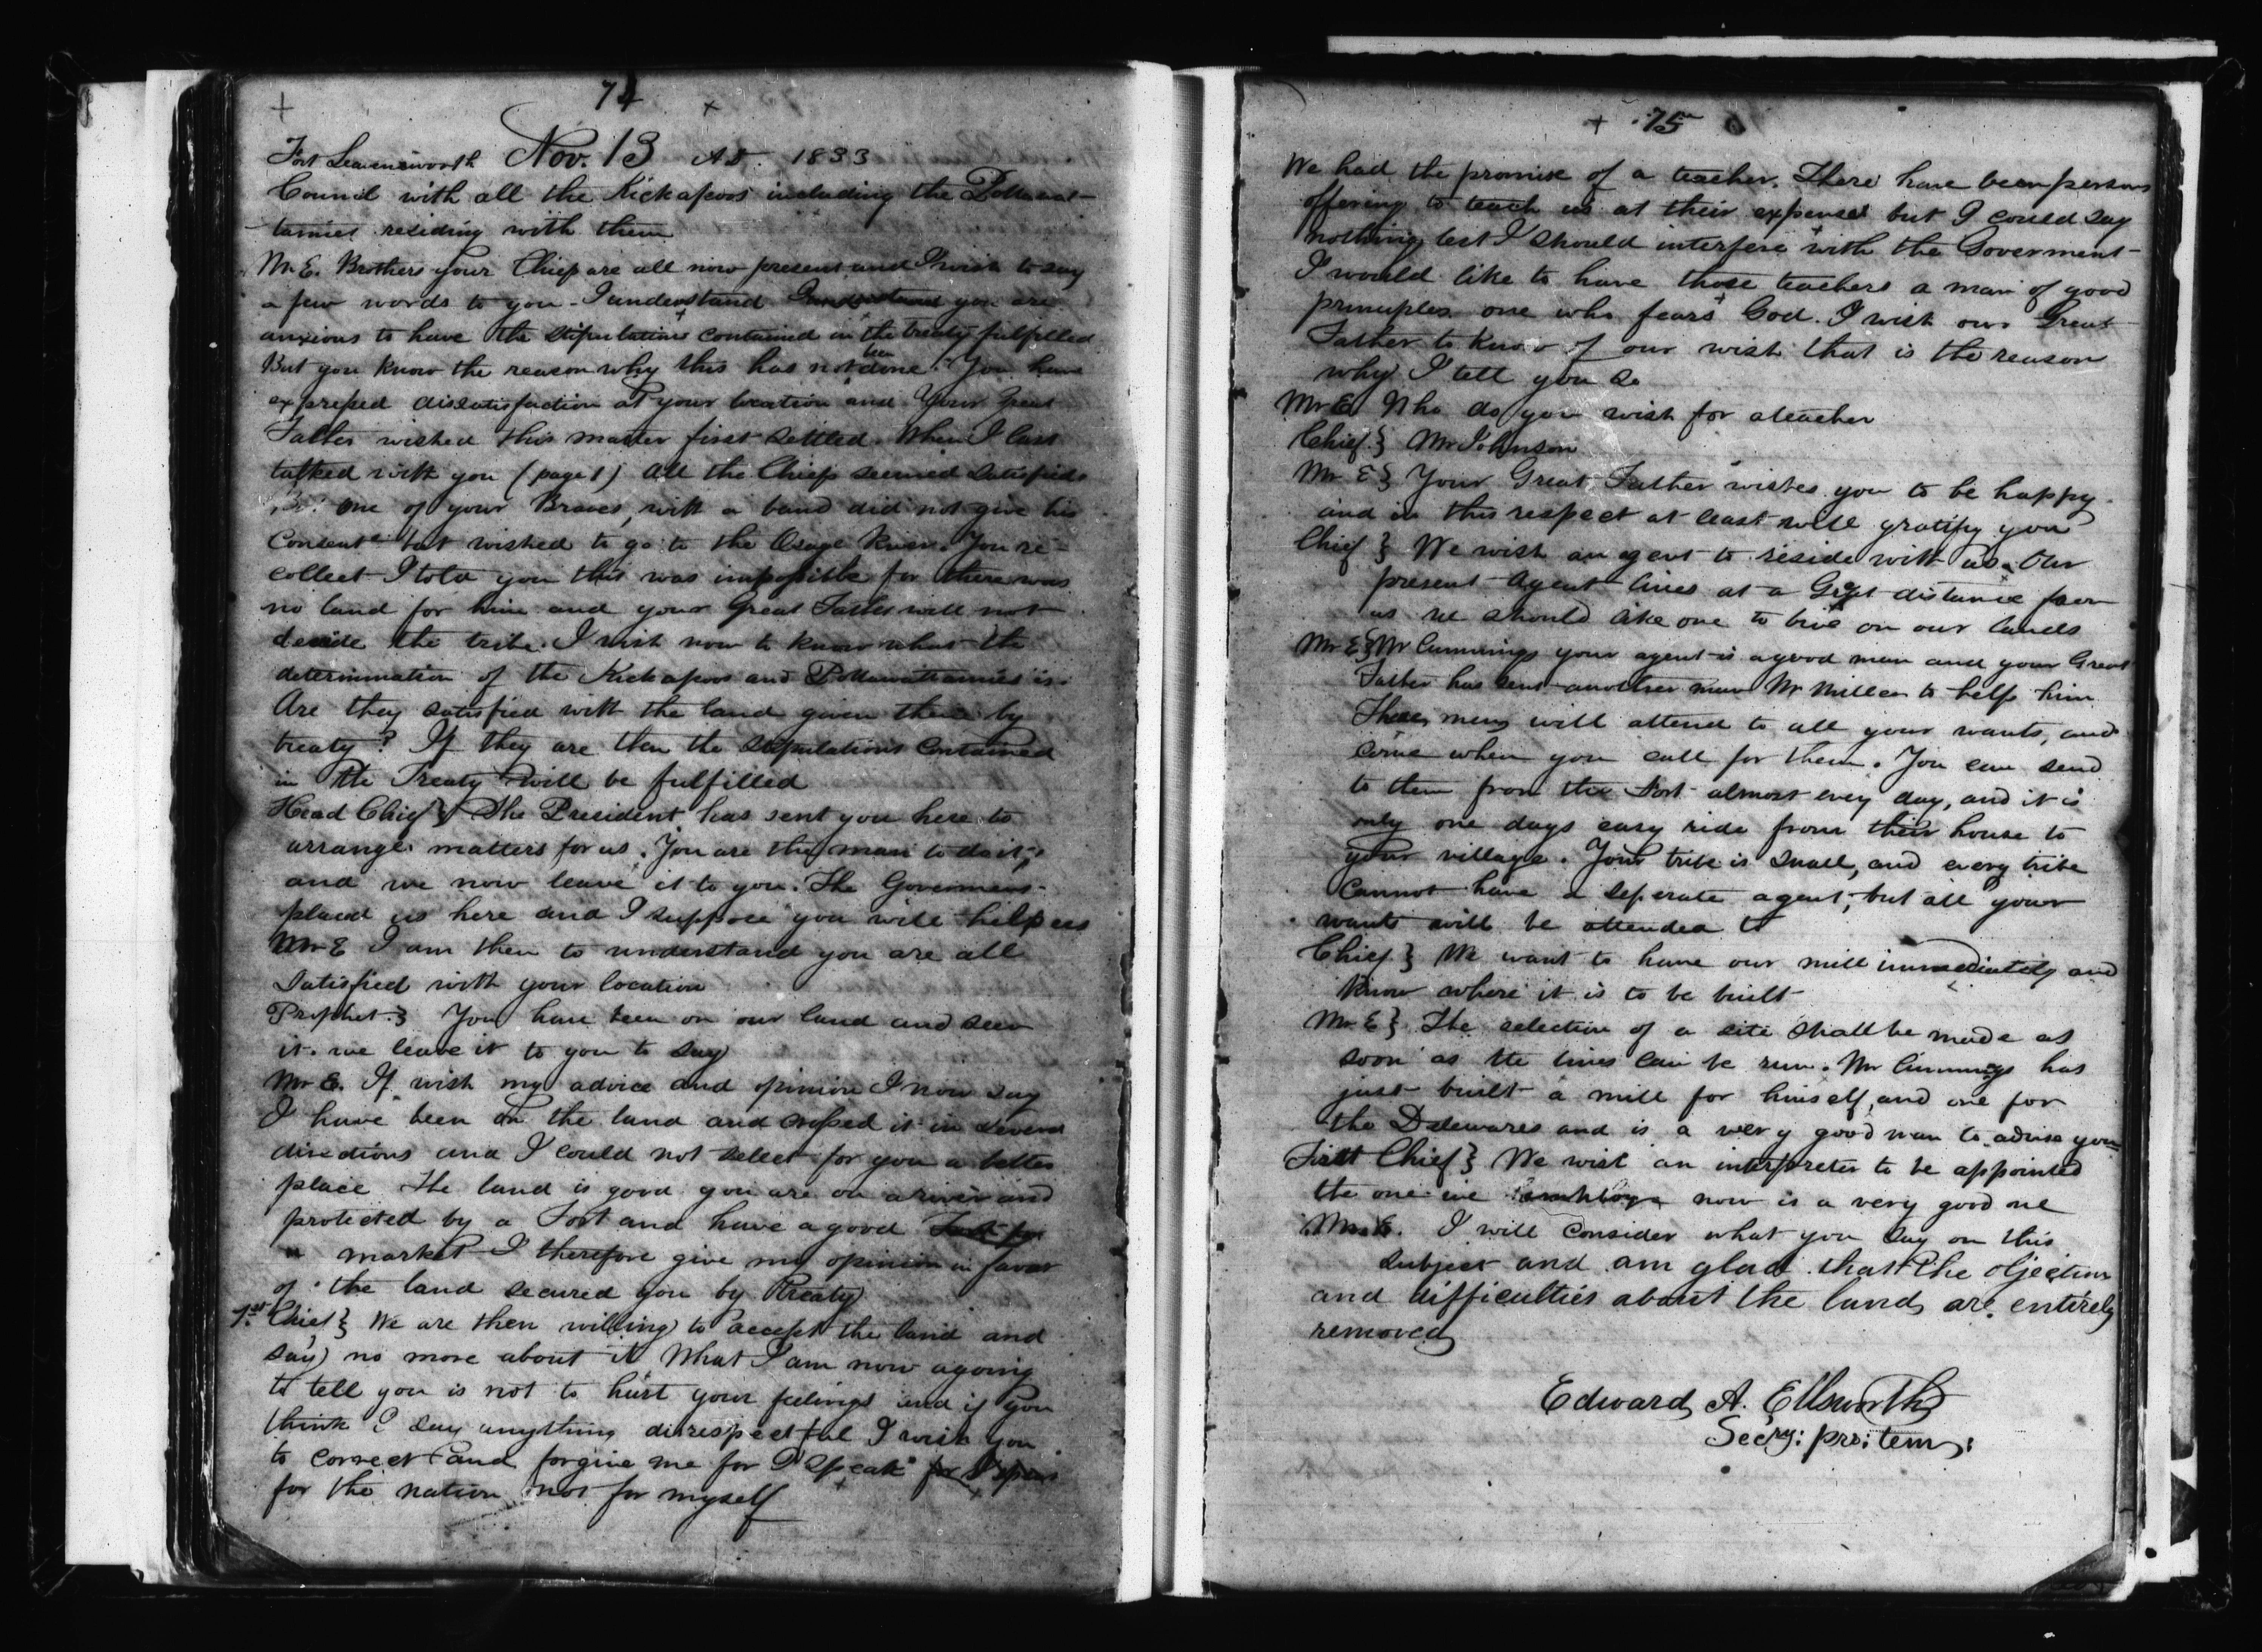 74
Fort Leavensworth Nov. 13 A.D. 1833
Council with all the Kickapoos including the Pottawat-
tamies residing with them
Mr E. Brothers your Chiefs are all now present and I wish to say
a few words to you - I understand you are
anxious to have the stipulations contained in the treaty fulfilled
But you know the reason why this has not been done. You have
expressed dissatisfaction at your location and Your Great
Father wished this matter first settled. When I last
talked with you (page 1) all the Chiefs seemed satisfied
But one of your Braves, with a band did not give his
consent but wished to go to the Osage River. You re-
collect I told you this was impossible for there was
no land for him and your Great Father will not
devide the tribe. I wish now to know what the
determination of the Kickapoos and Pottawattamies is.
Are they satisfied with the land given them by
treaty? If they are then the stipulations contained
in the Treaty will be fulfilled
Head Chief} The President has sent you here to
arrange matters for us. You are the man to do it,
and we now leave it to you. The Goverment
placed us here and I suppose you will help us
Mr E I am then to understand you are all
satisfied with your location
Prophet.} You have been on our land and seen
it. we leave it to you to say
Mr E. If wish my advice and opinion I now say
I have been on the land and crossed it in several
directions and I could not select for you a better
place The land is good you are on a river and
protected by a Fort and have a good
market I therefore give my opinion in favor
of the land secured you by Treaty
1st Chief} We are then willing to accept the land and
say no more about it What I am now agoing
to tell you is not to hurt your feelings and if you
think I say anything disrespectful I wish you
to correct and forgive me for I speak
for the nation not for myself
75
We had the promise of a teacher. There have been persons
offering to teach us at their expense but I could say
nothing lest I should interfere with the Goverment
I would like to have those teachers a man of good
principles one who fears God. I wish our Great
Father to know of our wish that is the reason
why I tell you so
Mr E. Who do you wish for a teacher
Chief.} Mr Johnson
Mr E} Your Great Father wishes you to be happy
and in this respect at least will gratify you
Chief} We wish an agent to reside with us. Our
present Agent lives at a Great distance from
us we should like one to live on our lands
Mr E} Mr Cummings your agent is a good man and your Great
Father has sent another man Mr Miller to help him
These men will attend to all your wants, and
come when you call for them. You can send
to them from the Fort almost every day, and it is
only one days easy ride from their house to
your village. Your tribe is small, and every tribe
cannot have a seperate agent; but all your
wants will be attended to
Chief} We want to have our mill immediately and
know where it is to be built
Mr E} The selection of a site shall be made as
soon as the lines can be run. Mr Cummings has
just built a mill for himself, and one for
the Delewares and is a very good man to advise you
First Chief} We wish an interpreter to be appointed
the one we employ now is a very good one
Mr E. I will consider what you say on this
subject and am glad that the objection
and difficulties about the lands are entirely
removed
Edward A. Ellsworth
Secry: pro: tem: